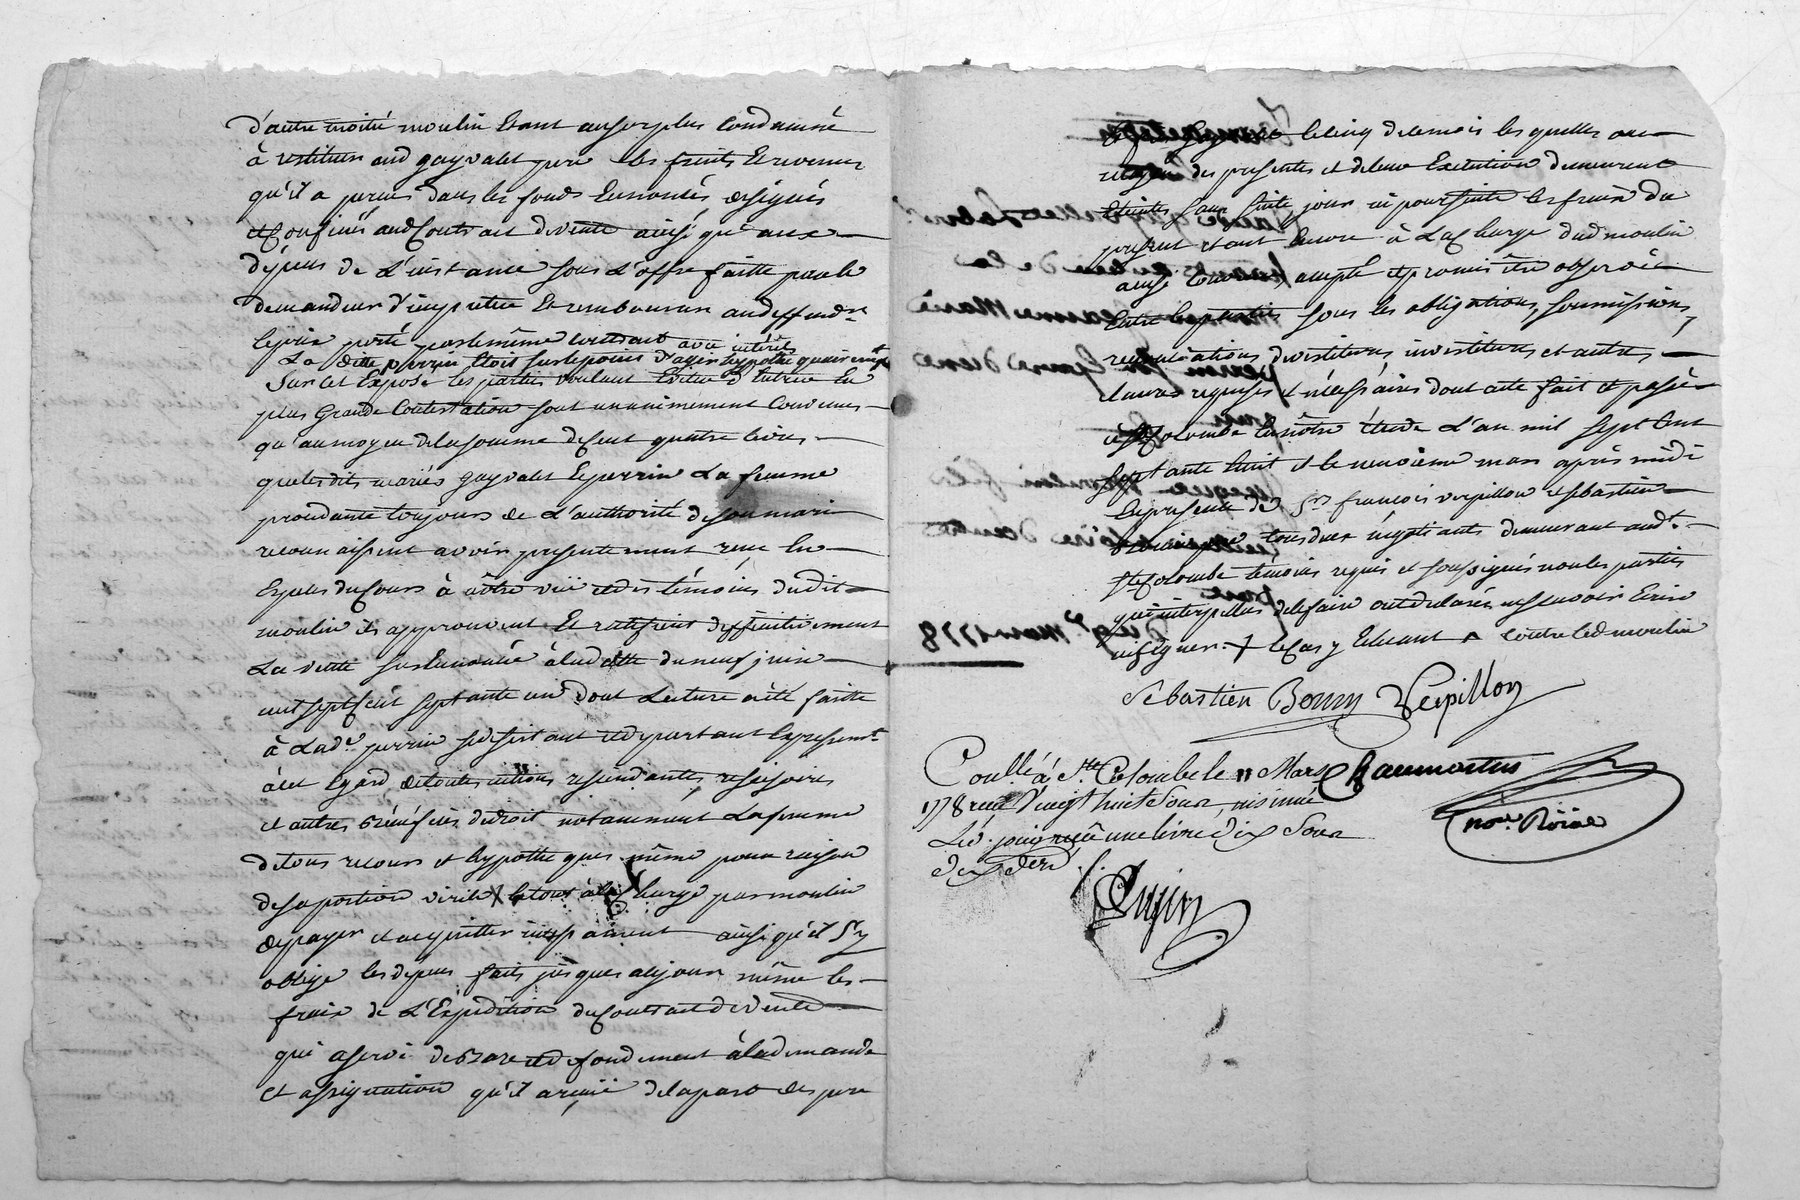 d'autre moitié moulin Étant ausurplus Condamné
à restituer aud gayvalet pere les fruits Et revenus
qu'il a perçus dans les fonds Enoncés désignés
et Confinés aud Contrait de vente ainsi qu'aux
dépens de L'instance sous L'offre faitte par le
demandeur d'imputer Et rembourser au deffendr
le prix porté par le même Contrait avec intérêt
La ditte perrin Etoit sur le point d'agir hypothéquairemt
Sur cet Exposé les parties voulant Eviter d'Entrer En
plus Grande Contestation sont unanimement Convenues
qu'au moyen de la somme de Cent quatre livres
que lesdits mariés gayvalet Et perrin La femme
procédante toujours de L'authorité de son mari
reconnaissent avoir presentement reçu En
Espèces du Cours à nôtre vüe et des témoins dudit
moulin ils approuvent Et ratifient deffinitivement
La vente susEnoncée à la datte du neuf juin
mil sept Cent septante un dont Lecture a été faitte
à Lade perrin se desistant et départant Expressemt
à cet Egard de toutes actions rescindantes, rescisoires
et autres Bénéfices de droit notamment La femme
de tous recours et hypotheques même pour raison
de sa portion virile le tout à la Charge par moulin
de payer et acquitter ainsi qu'il S'y
oblige les dépens faits jusques à ce jour même les
fraix de L'Expédition du Contrait de vente
qui a servi de Baze et de fondement à la demande
et assignation qu'il a reçüe de la part des pere
le Cinq de ce mois les quelles au
moyen des presentes et de leur Exécution demeurent
Eteintes sans suite jour ni poursuitte les fraix du
present étant Encore à La Charge dud moulin
ainsi Convenu accepté et promis être observé
Entre les parties sous les obligations, soumissions,
renonciations, devestitures, investitures et autres
clauses requises et nécessaires dont acte fait et passé
à Ste Colombe En nôtre Etude L'an mil sept Cent
septante huit et le neuvième mars après midi
En presence de Srs françois verpillon et sebastien
tous deux négotiants demeurant aud.
Ste Colombe témoins requis et soussignés non les parties
qui interpellées de le faire ont déclaré ne sçavoir Ecrire
ni signer. + le Cas y Echeant contre led moulin
Sébastien Bonny Verpillon
Conllé à Ste Colombe le 11 Mars
1778 reçu Vingt huit Sous, insinué
Led. jour reçu une livre dix Sous
dix den
nore Roïal
Du 9e mars 1778